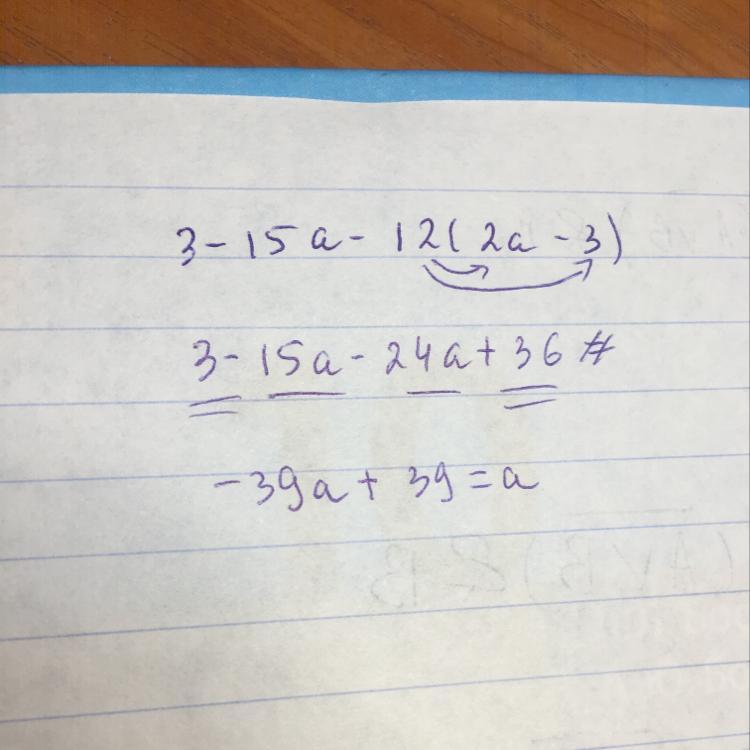 3 - 15a - 12(2a - 3)
3 - 15a - 24a + 36 #
-39a + 39 = a